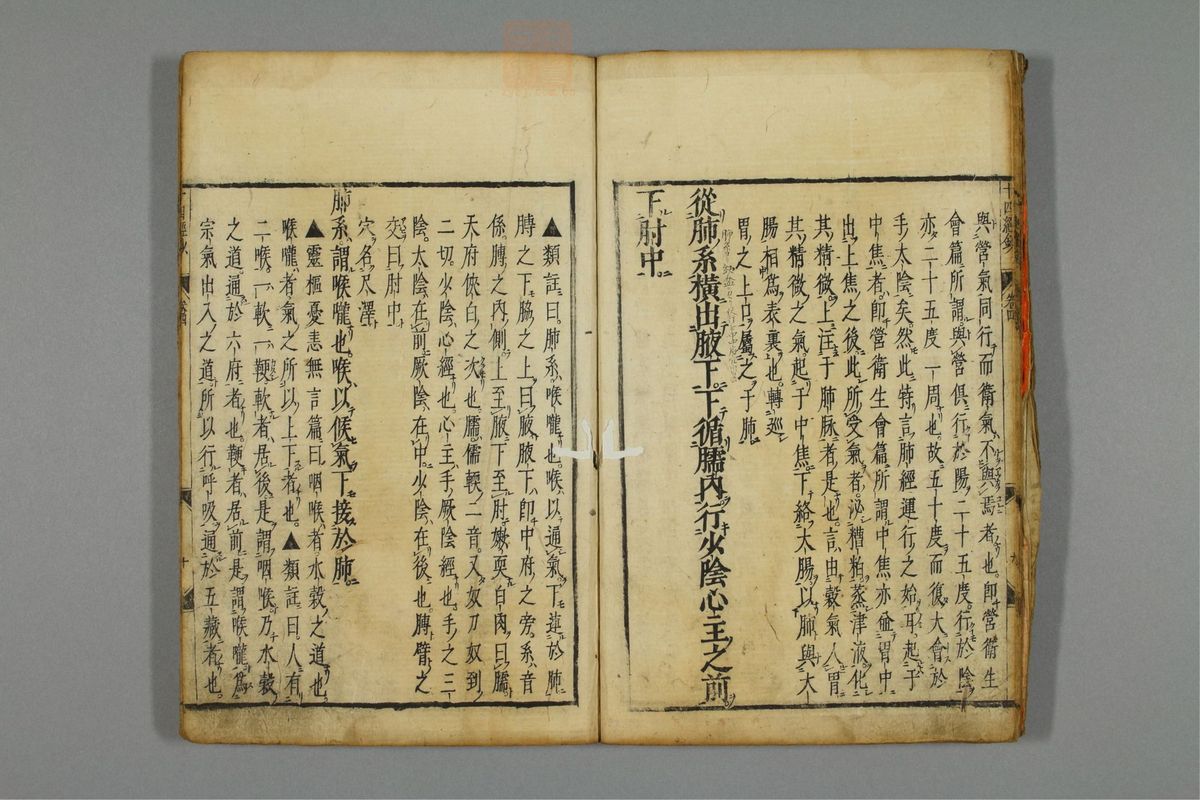 與營氣同行而衛氣不與焉者也即營衛生
會篇所謂與營俱行於陽二十五度行於陰
亦二十五度一周也故五十度而復大會於
手太陰矣然此特言肺經運行之始耳起于
中焦者即營衛生會篇所謂中焦亦並胃中
出上焦之後此所受氣者泌糟粕蒸津液化
其精微上注于肺脉者是也言由穀氣入胃
其精微之氣起于中焦下絡大腸以肺與大
腸相爲表裏也轉巡
胃之上口屬之于肺
從肺系橫出腋下下循臑内行少陰心主之前
下肘中
▲類註曰肺系喉嚨也喉以通氣下連於肺
膊之下脇之上曰腋腋下即中府之旁系音
係膊之内側上至腋下至肘嫩耎白肉曰臑
天府俠白之次也臑儒輭二音又奴刀奴到
二切少陰心經也心主手厥陰經也手之三
陰太陰在前厥陰在中少陰在後也膊臂之
交曰肘中
穴名尺澤
肺系謂喉嚨也喉以候氣下接於肺
▲靈樞憂恚無言篇曰咽喉者水穀之道也
喉嚨者氣之所以上下者也▲類註曰人有
二喉一軟一鞕軟者居後是謂咽喉乃水穀
之道通於六府者也鞕者居前是謂喉嚨爲
宗氣出入之道所以行呼吸通於五藏者也